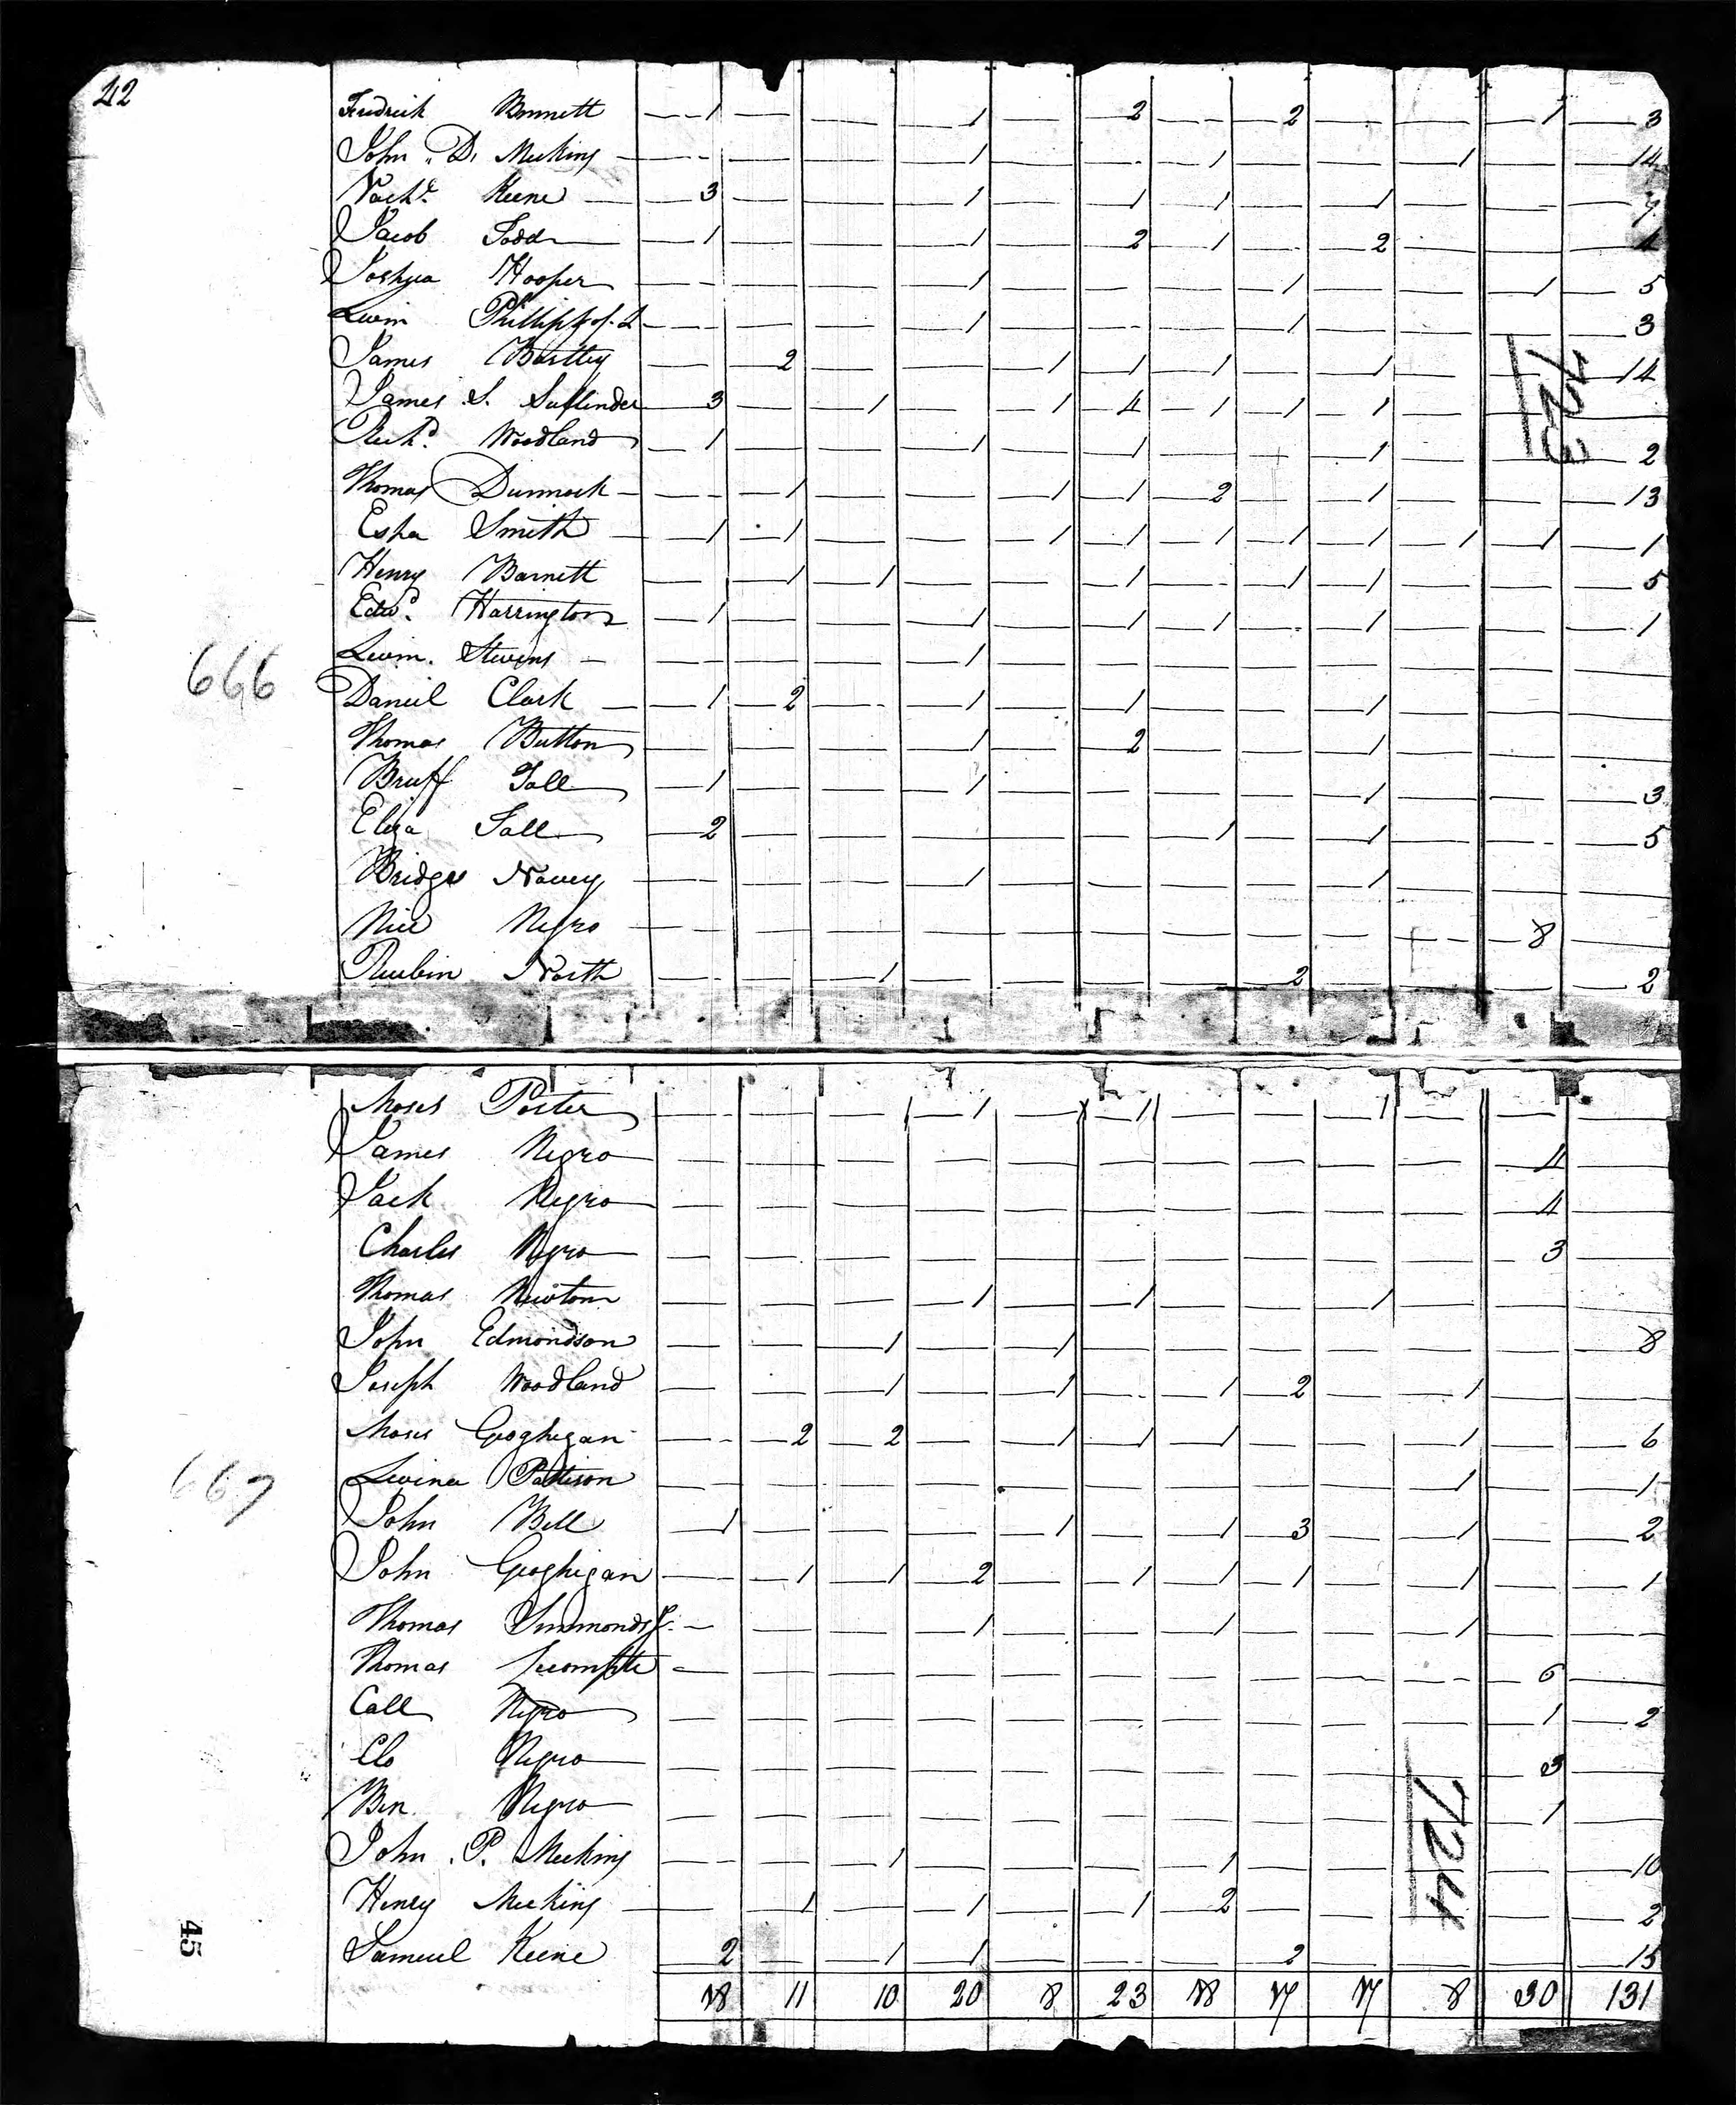 42
Fredrick Bonnett — 1 — — 1 — 2 — 2 — — 1 3
John D. Meekins — — — 1 — — 1 — — 1 — 14
Zach.ͩ Keene 3 — — 1 — 1 1 — 1 — — 7
Jacob Todd 1 — — 1 — 2 1 — 2 — — 4
Joshua Hooper — — — 1 — — — 1 — — 1 5
Levin Phillips of L — — — 1 — — — 1 — — — 3
James Bartley — 2 — — 1 1 1 — 1 — — 14
James S. 3 — 1 — 1 4 1 1 1 — — —
Rich.ᵈ Woodland 1 — — 1 — 1 — — 1 — — 2
Thomas Dunnock — 1 — — 1 1 2 — 1 — — 13
Smith 1 1 — — 1 1 1 1 1 1 1 1
Henry Barnett — 1 1 — — 1 — 1 1 — — 5
Edw.ᵈ Harrington 1 — — 1 — 1 1 — 1 — — 1
Levin. Stevens — — — 1 — — — — — — — —
Daniel Clark 1 2 — 1 — 1 — — 1 — — —
Thomas Button — — — 1 — 2 — — 1 — — —
Bruff Tall 1 — — 1 — — — — 1 — — 3
Eliza Tall 2 — — — — — 1 — 1 — — 5
Bridges Navey — — — 1 — — — — 1 — — —
Nice Negro — — — — — — — — — — 8 —
Reubin North — — 1 — — — — 2 — — — 2
666
723
Moses Porter — — — 1 — 1 — — 1 — — —
James Negro — — — — — — — — — — 4 —
Jack Negro — — — — — — — — — — 4 —
Charles Negro — — — — — — — — — — 3 —
Thomas Newton — — — 1 — 1 — — 1 — — —
John Edmondson — — 1 — 1 — — — — — — 8
Joseph Woodland — — 1 — 1 — 1 2 — 1 — —
Moses Geoghegan — 2 2 — 1 1 1 — — 1 — 6
Levina Pattison — — — — — — — — — 1 — 1
John Bell 1 — — — 1 — 1 3 — 1 — 2
John Geoghegan — 1 1 2 — 1 1 1 — 1 — 1
Thomas Simmonds Jr. — — — 1 — — 1 — — 1 — —
Thomas Lecompte — — — — — — — — — — 6 —
Call Negro — — — — — — — — — — 1 2
Clo Negro — — — — — — — — — — 3 —
Ben Negro — — — — — — — — — — 1 —
John P. Meekins — — 1 — — — 1 — — — — 10
Henry Meekins — 1 — 1 — 1 2 — — — — 2
Samuel Keene 2 — 1 1 — — — 2 — — — 15
18 11 10 20 8 23 18 17 17 8 30 131
667
724
45